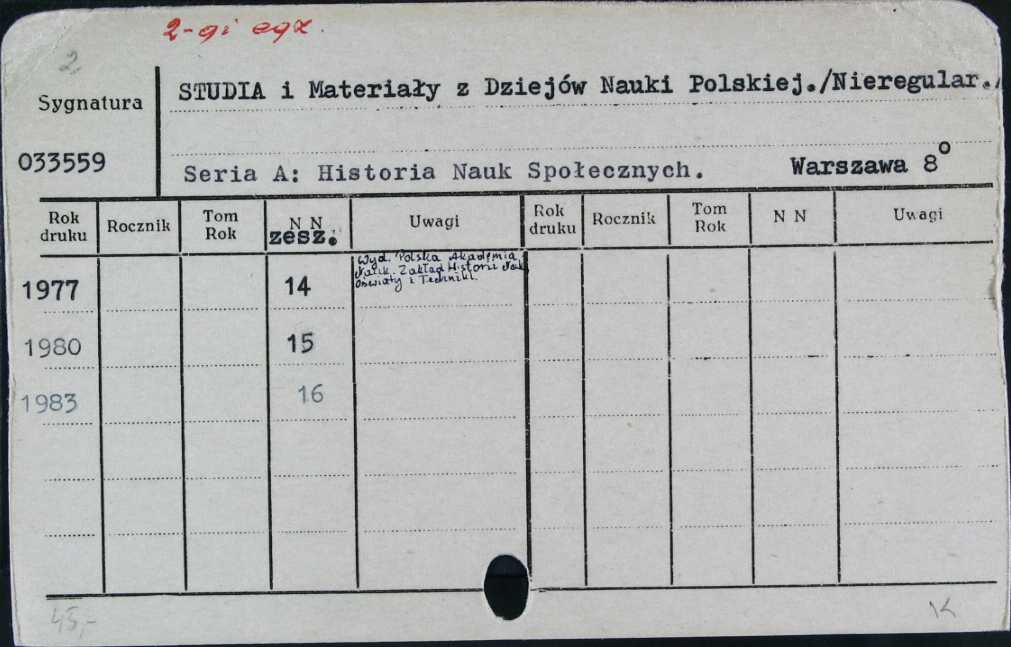 2-gi egz.
2
Sygnatura
STUDIA i Materiały z Dziejów Nauki Polskiej./Nieregular./
033559
Seria A: Historia Nauk Społecznych. Warszawa 8°
Rok druku Rocznik Tom Rok N N zesz. Uwagi Rok druku Rocznik Tom Rok N N Uwagi
Wyd. Polska Akademia
Nauk. Zakład Historii Nauk
Oświaty i Techniki.
1977 14
1980 15
1983 16
45,-
K